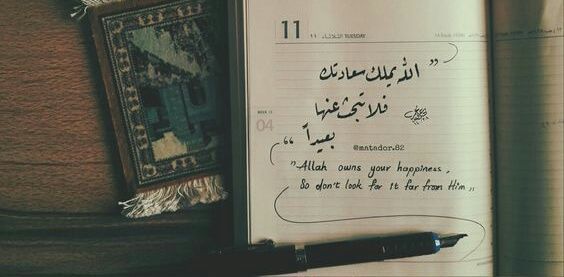 11 ١١ الثلاثاء TUESDAY
WEEK 15
04
" الله يملك سعادتك
فلا تبحث عنها
بعيداً "
@matador.82
"Allah owns your happiness,
So don't look for it far from Him"